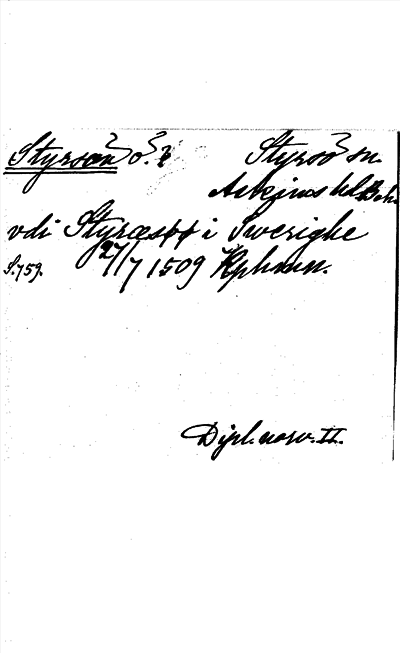 Styrsön ö. Styrsö sn.
Askims hd Boh.
vdi Styræsøø i Swerighe
S.759. 27/7 1509 Kphmn.
Dipl. norv. II.